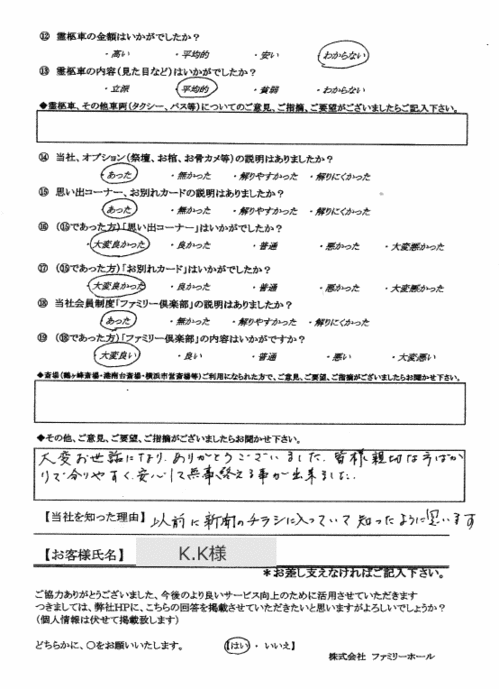 ⑫ 霊柩車の金額はいかがでしたか？
・高い ・平均的 ・安い ・わからない
⑬ 霊柩車の内容（見た目など）はいかがでしたか？
・立派 ・平均的 ・貧弱 ・わからない
◆霊柩車、その他車両（タクシー、バス等）についてのご意見、ご指摘、ご要望がございましたらご記入下さい。
⑭ 当社、オプション（祭壇、お棺、お骨カメ等）の説明はありましたか？
・あった ・無かった ・解りやすかった ・解りにくかった
⑮ 思い出コーナー、お別れカードの説明はありましたか？
・あった ・無かった ・解りやすかった ・解りにくかった
⑯ （⑮であった方）「思い出コーナー」はいかがでしたか？
・大変良かった ・良かった ・普通 ・悪かった ・大変悪かった
⑰ （⑮であった方）「お別れカード」はいかがでしたか？
・大変良かった ・良かった ・普通 ・悪かった ・大変悪かった
⑱ 当社会員制度「ファミリー倶楽部」の説明はありましたか？
・あった ・無かった ・解りやすかった ・解りにくかった
⑲ （⑱であった方）「ファミリー倶楽部」の内容はいかがですか？
・大変良い ・良い ・普通 ・悪い ・大変悪い
◆斎場（鶴ヶ峰斎場・港南台斎場・横浜市営斎場等）ご利用になられた方で、ご意見、ご要望、ご指摘がございましたらお聞かせ下さい。
◆その他、ご意見、ご要望、ご指摘がございましたらお聞かせ下さい。
大変お世話になり、ありがとうございました。皆様親切な方ばか
りで分りやすく、安心して無事終える事が出来ました。
【当社を知った理由】以前に新聞のチラシに入っていて知ったように思います
【お客様氏名】 K.K様
＊お差し支えなければご記入下さい。
ご協力ありがとうございました、今後のより良いサービス向上のために活用させていただきます
つきましては、弊社HPに、こちらの回答を掲載させていただきたいと思いますがよろしいでしょうか？
（個人情報は伏せて掲載致します）
どちらかに、〇をお願いいたします。 【はい ・ いいえ】
株式会社 ファミリーホール